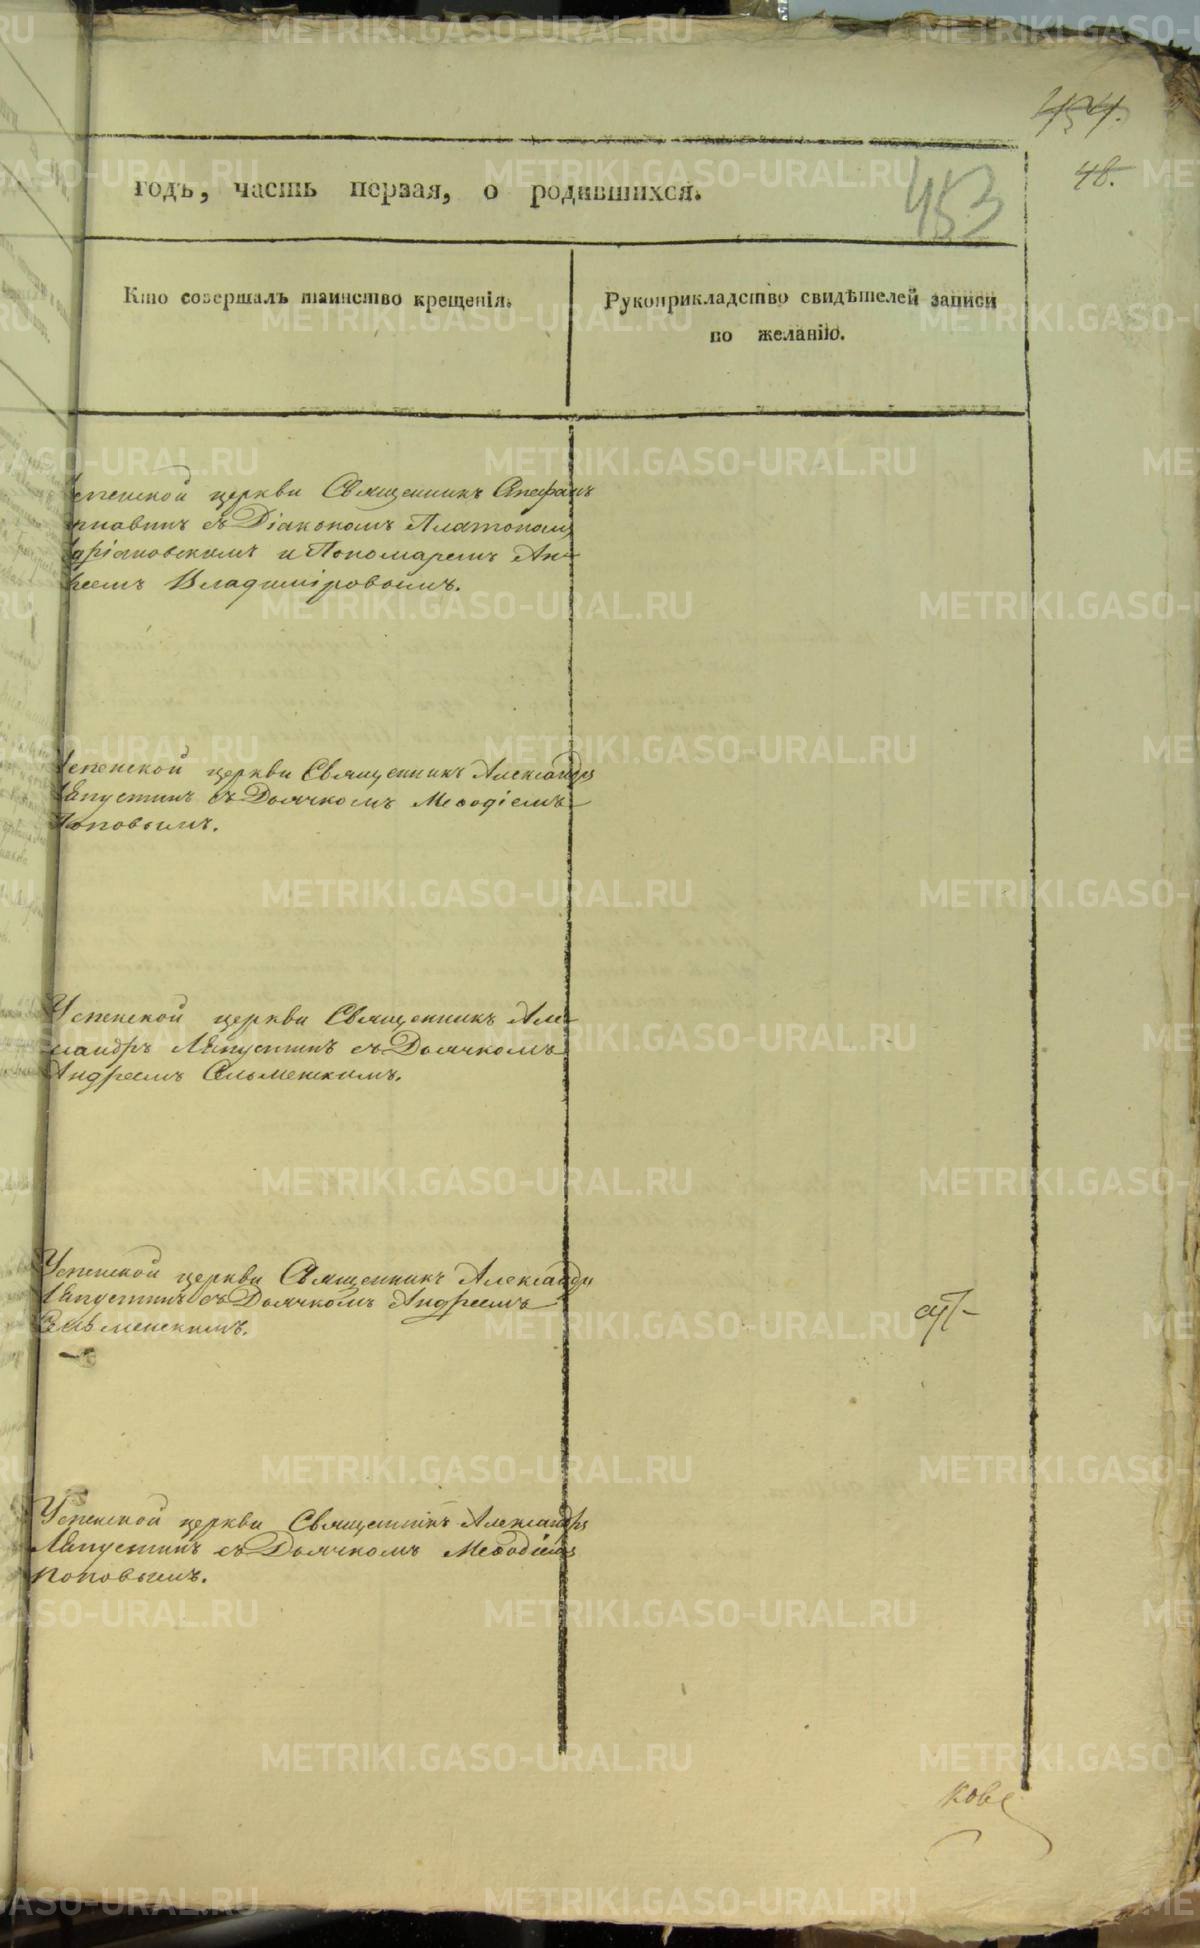 454.
48.
453
годъ, часть первая, о родившихся.
Кто совершалъ таинство крещенія.
Рукоприкладство свидѣтелей записи
по желанію.
Успенской церкви Священникъ Стефанъ
съ Діакономъ Платономъ
и Пономаремъ Ан-
реемъ Владиміровымъ.
Успенской церкви Священникъ Александръ
Лапустинъ съ Дьячкомъ Меѳодіемъ
Поповымъ.
Успенской церкви Священникъ Алек
сандръ Лапустинъ съ Дьячкомъ
Андреемъ
Успенской церкви Священникъ Александръ
Лапустинъ съ Дьячкомъ Андреемъ
Успенской церкви Священникъ Александръ
Лапустинъ съ Дьячкомъ Меѳодіемъ
Поповымъ.
кове
METRIKI.GASO-URAL.RU